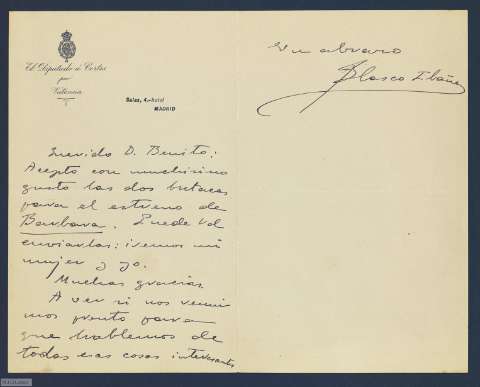 El Diputado á Cortes
por
Valencia
Salas, 4.-hotel
MADRID
Querido D. Benito:
Acepto con muchísimo
gusto las dos butacas
para el estreno de
Barbara. Puede Vd
enviarlas: iremos mi
mujer y yo.
Muchas gracias.
A ver si nos reuni
mos pronto para
que hablemos de
todas esas cosas interesantes
Un abrazo
Blasco Ibáñez